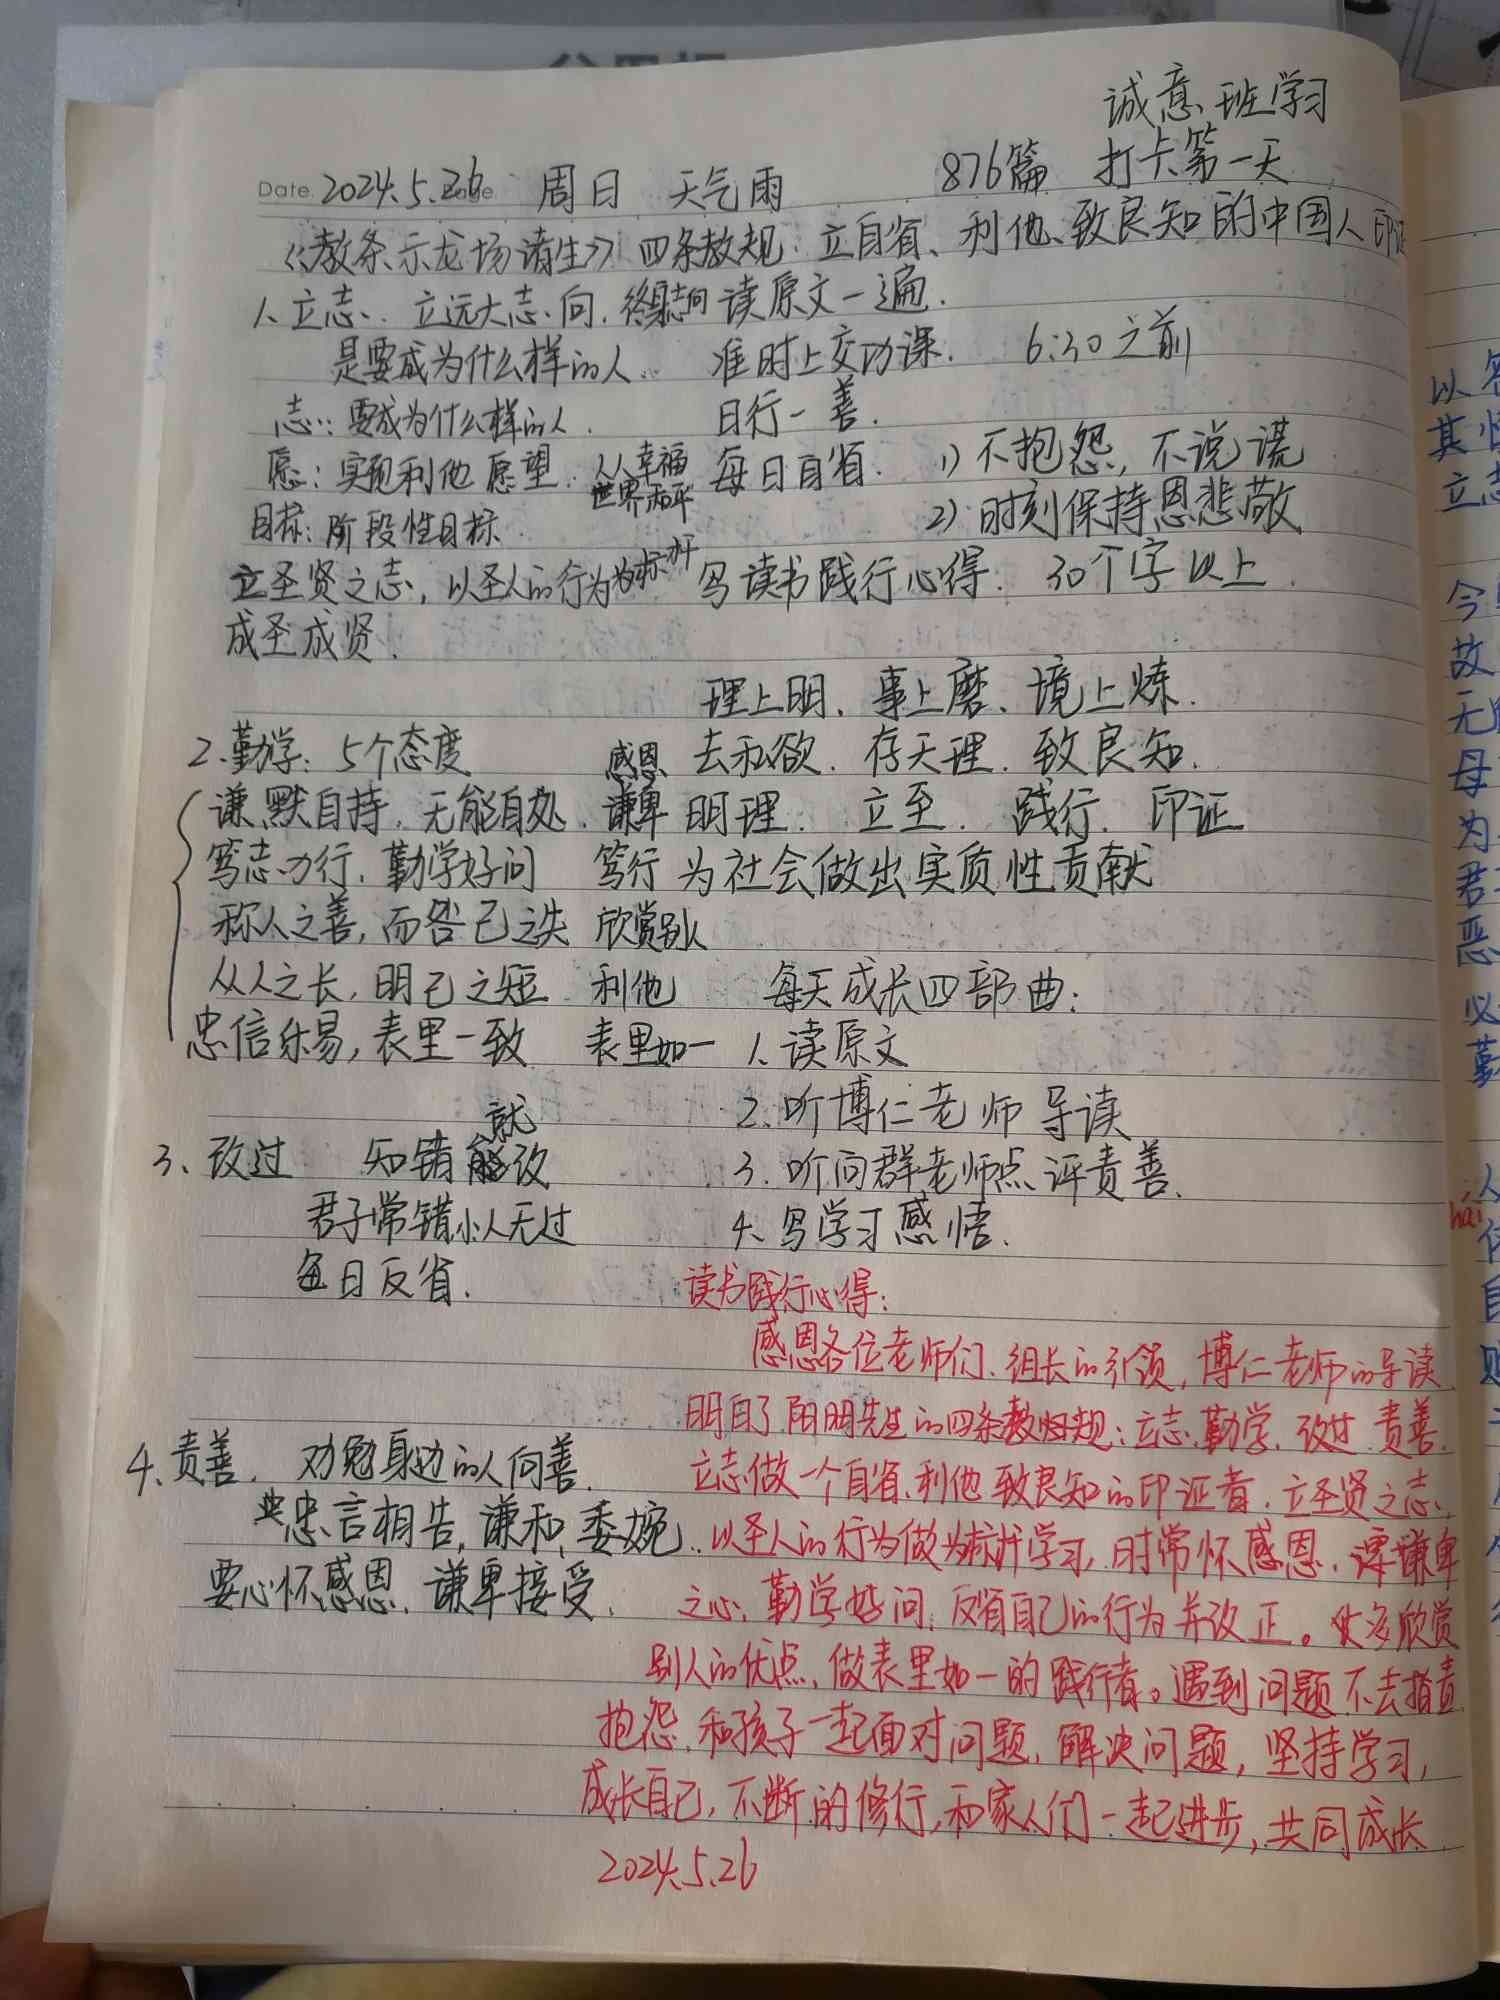 诚意班学习
Date 2024.5.26 周日 天气雨 876篇 打卡第一天
《教条示龙场诸生》四条教规：立自省、利他、致良知的中国人印证
1、立志、立远大志向，终身志向 读原文一遍.
是要成为什么样的人. 准时上交功课. 6:30之前
志：要成为什么样的人. 日行一善.
愿：实现利他愿望. 人人幸福 世界和平 每日自省. 1)不抱怨，不说谎
目标：阶段性目标 2)时刻保持恩悲敬
立圣贤之志，以圣人的行为为标杆 写读书践行心得. 30个字以上.
成圣成贤.
理上明、事上磨、境上炼.
2.勤学：5个态度 感恩 去私欲. 存天理. 致良知.
谦默自持，无能自处. 谦卑 明理. 立至. 践行. 印证
笃志力行，勤学好问 笃行 为社会做出实质性贡献
称人之善，而咎己之失 欣赏别人
从人之长，明己之短 利他 每天成长四部曲：
忠信乐易，表里一致 表里如一 1、读原文
2.听博仁老师导读
3、改过 知错就改 3.听问群老师点评责善.
君子常错小人无过 4、写学习感悟.
每日反省.
读书践行心得：
感恩各位老师们、组长的引领，博仁老师的导读
明白了阳明先生的四条教规：立志、勤学、改过、责善.
4、责善. 劝勉身边的人向善. 立志做一个自省、利他、致良知的印证者. 立圣贤之志、
忠言相告，谦和，委婉. 以圣人的行为做为标杆学习，时常怀感恩、谦卑
要心怀感恩、谦卑接受. 之心、勤学好问，反省自己的行为并改正。多欣赏
别人的优点，做表里如一的践行者。遇到问题不去指责
抱怨，和孩子一起面对问题，解决问题，坚持学习，
成长自己，不断的修行，和家人们一起进步，共同成长
2024.5.26
以
其
立志
今
故
无
母
为
君
恶
必
勤
人
hái
自